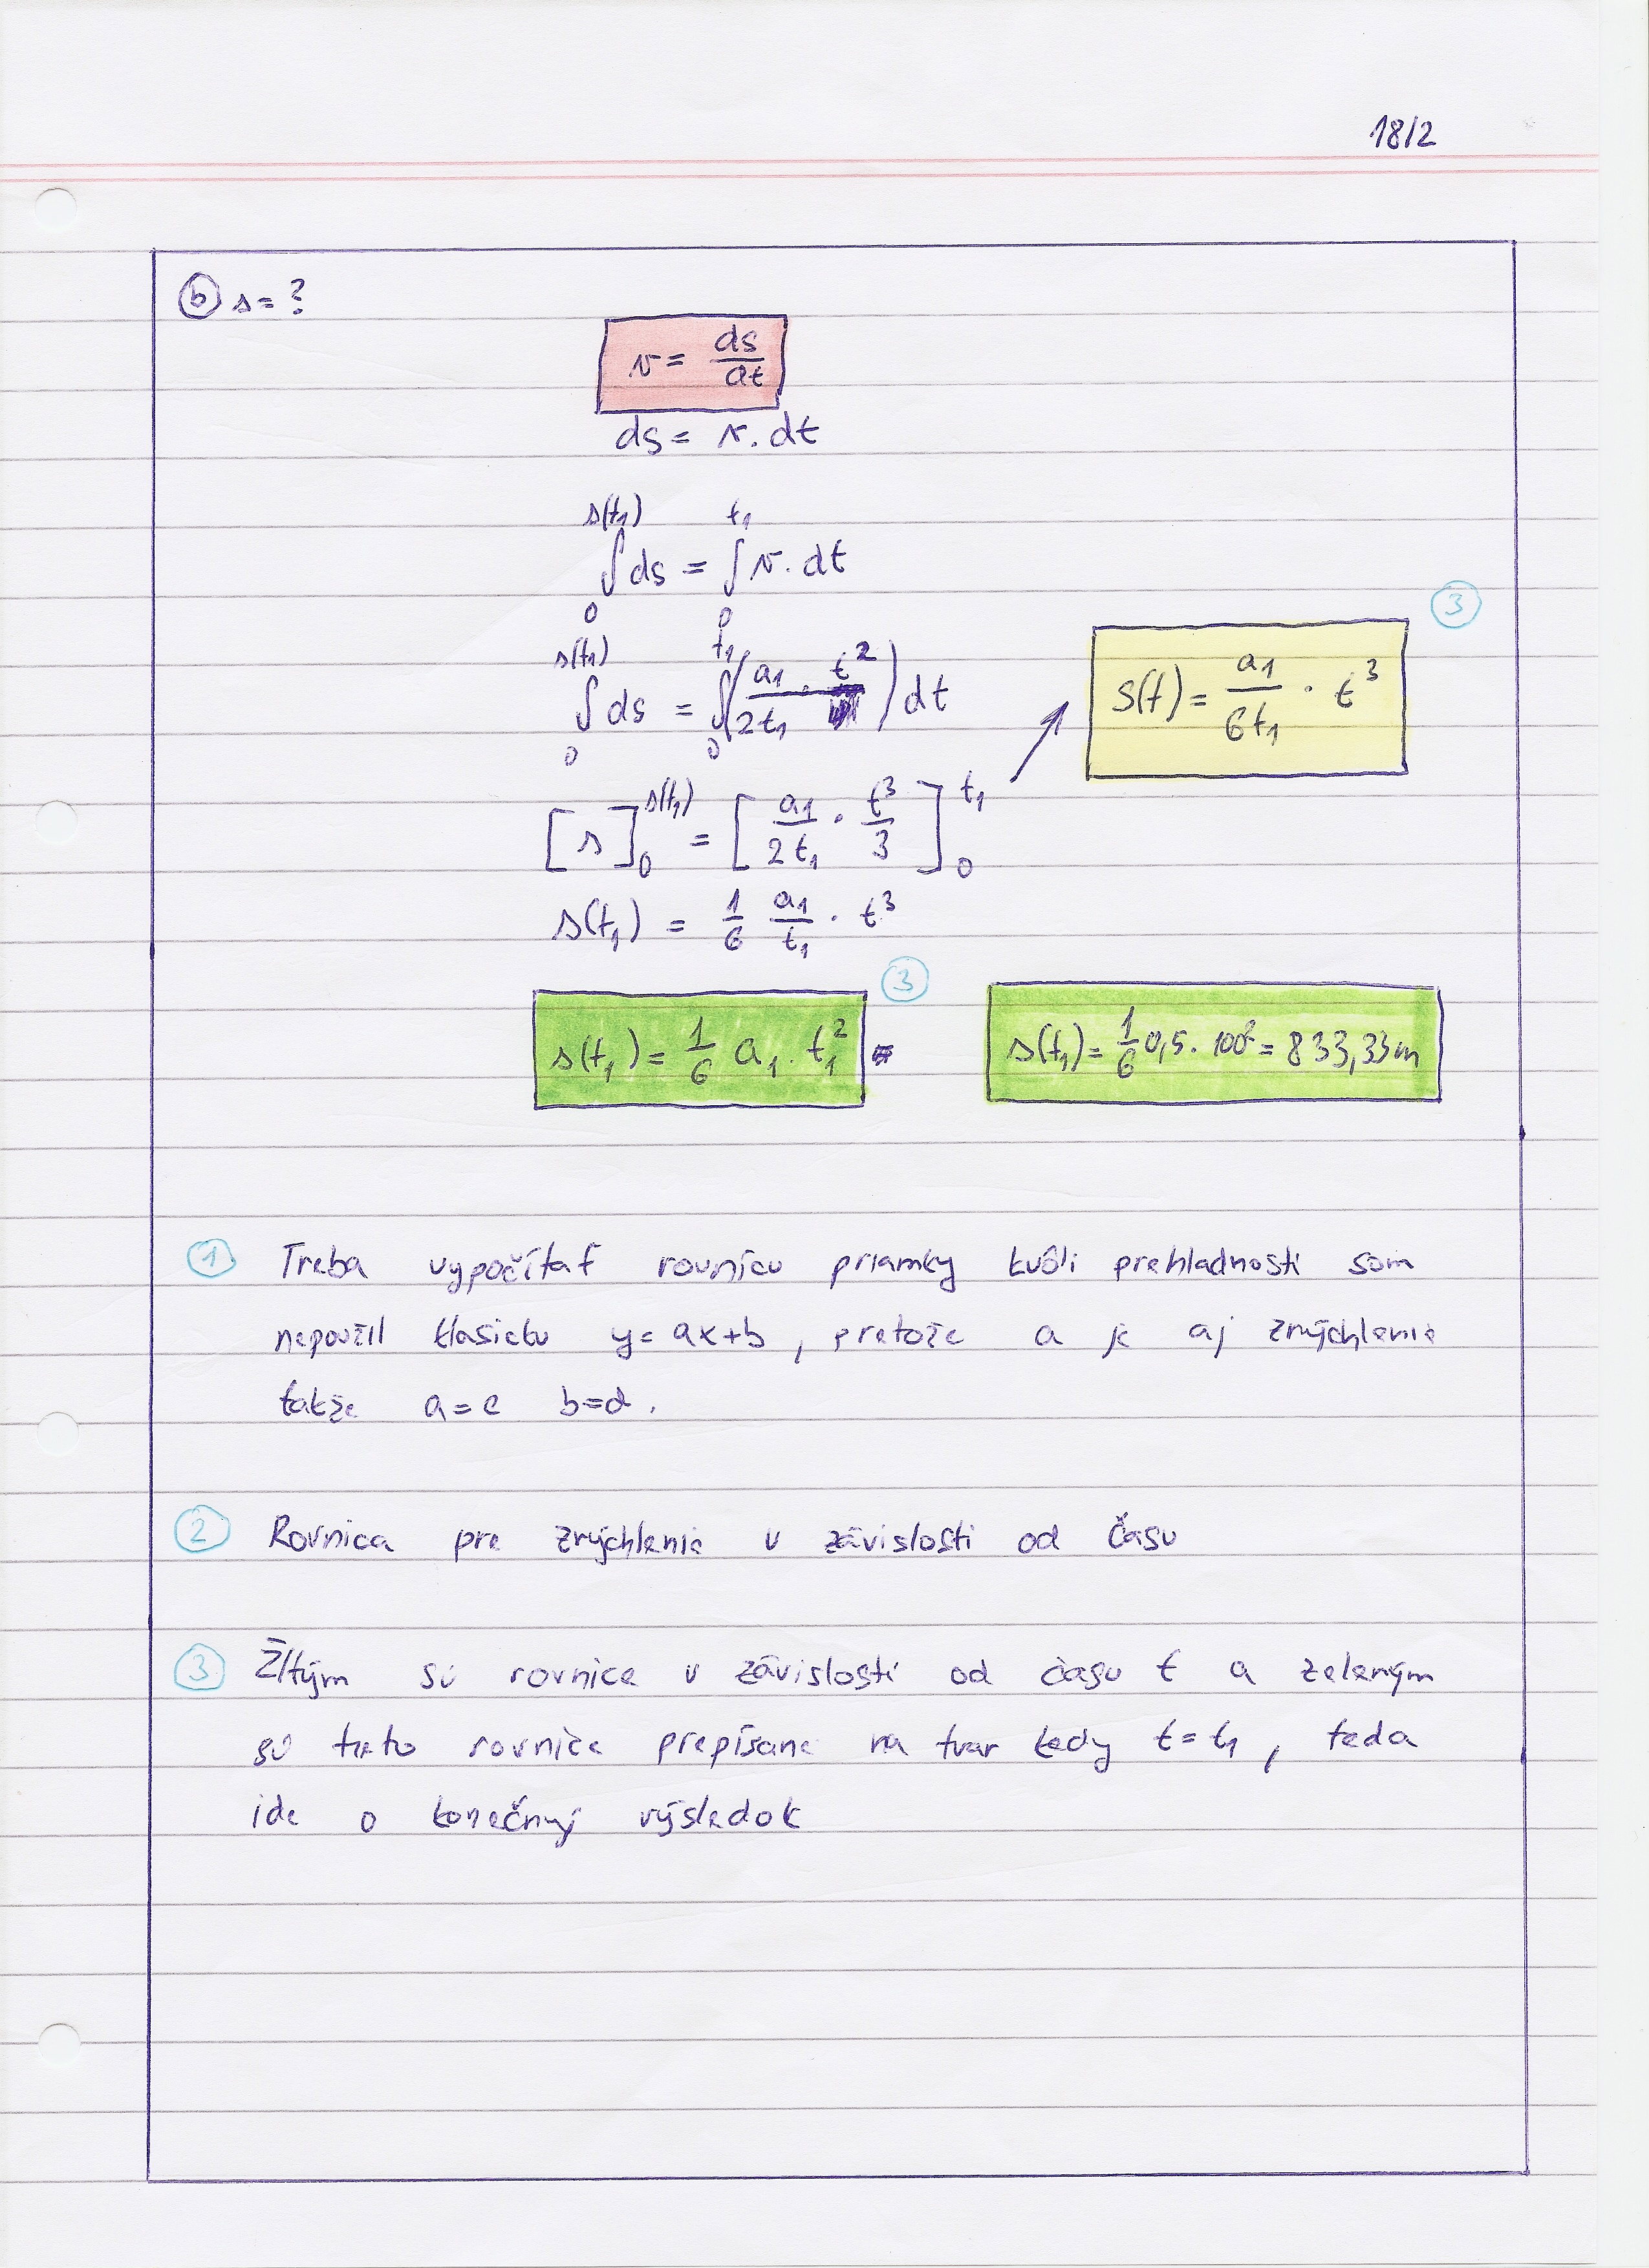 18/2
ⓑ s = ?
v = ds/dt
ds = v . dt
∫₀^s(t₁) ds = ∫₀^t₁ v . dt
∫₀^s(t₁) ds = ∫₀^t₁ (a₁/2t₁ · t²) dt
③
s(t) = a₁/6t₁ · t³
[s]₀^s(t₁) = [a₁/2t₁ · t³/3]₀^t₁
s(t₁) = 1/6 a₁/t₁ · t³
③
s(t₁) = 1/6 a₁ . t₁² =
s(t₁) = 1/6 0,5 . 100² = 833,33m
① Treba vypočítať rovnicu priamky kvôli prehladnosti som
nepoužil klasicku y = ax+b , pretože a je aj zrýchlenie
takže a = c b = d .
② Rovnica pre zrýchlenie v závislosti od času
③ Žltým sú rovnice v závislosti od času t a zeleným
sú tieto rovnice prepísane na tvar kedy t = t₁ , teda
ide o konečný výsledok